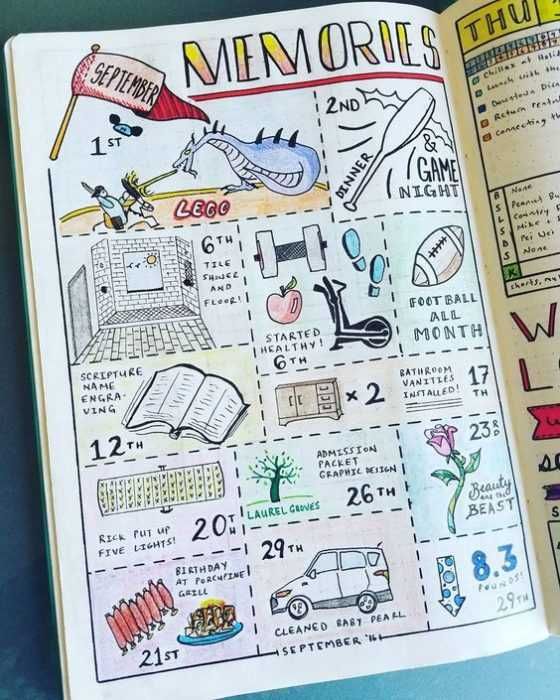 MEMORIES
SEPTEMBER
1ST
LEGO
2ND
DINNER
&
GAME
NIGHT
6TH
TILE
SHOWER
AND
FLOOR!
STARTED
HEALTHY!
6TH
FOOTBALL
ALL
MONTH
SCRIPTURE
NAME
ENGRA-
VING
12TH
×2
BATHROOM
VANITIES
INSTALLED!
17
TH
RICK PUT UP
FIVE LIGHTS!
20TH
LAUREL GROVES
ADMISSION
PACKET
GRAPHIC DESIGN
26TH
23RD
Beauty
and the
BEAST
BIRTHDAY
AT PORCUPINE
GRILL
21ST
29TH
CLEANED BABY PEARL
8.3
POUNDS!
29TH
SEPTEMBER '16
THU
Chillax at
Lunch with the
Downtown
Return
Connecting
None
Peanut
Country
Mike
Pei Wei
None
K
shorts,
W
L